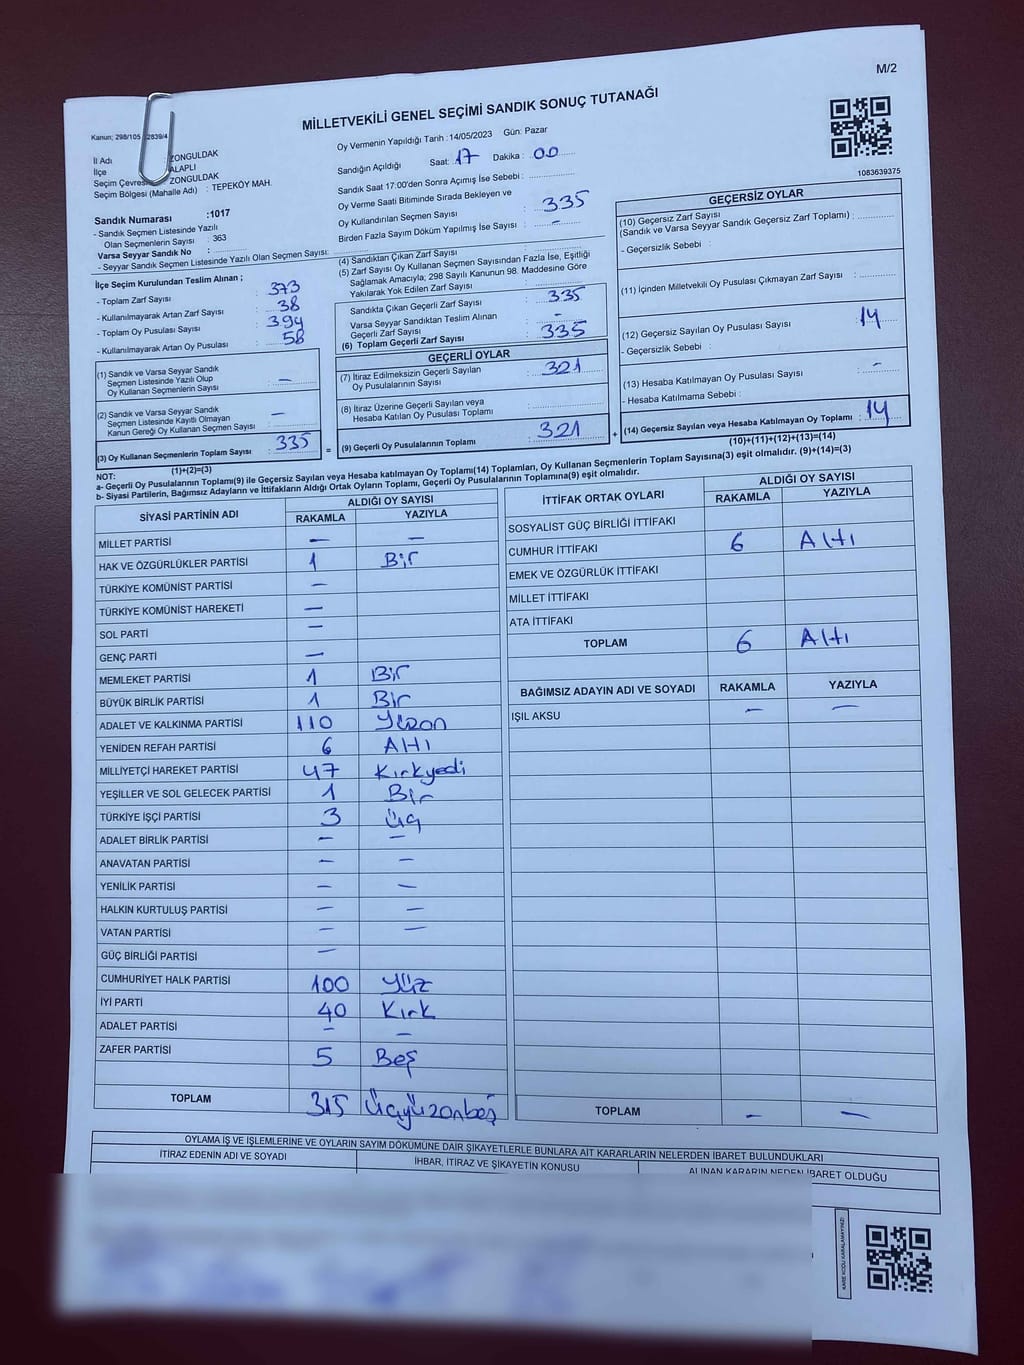 M/2
MİLLETVEKİLİ GENEL SEÇİMİ SANDIK SONUÇ TUTANAĞI
Kanun; 298/105, 2839/4
1083639375
İl Adı : ZONGULDAK
İlçe : ALAPLI
Seçim Çevresi : ZONGULDAK
Seçim Bölgesi (Mahalle Adı) : TEPEKÖY MAH.
Sandık Numarası :1017
- Sandık Seçmen Listesinde Yazılı
Olan Seçmenlerin Sayısı : 363
Varsa Seyyar Sandık No :
- Seyyar Sandık Seçmen Listesinde Yazılı Olan Seçmen Sayısı:
Oy Vermenin Yapıldığı Tarih : 14/05/2023 Gün: Pazar
Sandığın Açıldığı Saat: 17 Dakika : 00
Sandık Saat 17:00'den Sonra Açımış İse Sebebi :
Oy Verme Saati Bitiminde Sırada Bekleyen ve
Oy Kullandırılan Seçmen Sayısı : 335
Birden Fazla Sayım Döküm Yapılmış İse Sayısı : -
İlçe Seçim Kurulundan Teslim Alınan ;
- Toplam Zarf Sayısı : 373
- Kullanılmayarak Artan Zarf Sayısı : 38
- Toplam Oy Pusulası Sayısı : 394
- Kullanılmayarak Artan Oy Pusulası : 58
(1) Sandık ve Varsa Seyyar Sandık
Seçmen Listesinde Yazılı Olup
Oy Kullanan Seçmenlerin Sayısı : -
(2) Sandık ve Varsa Seyyar Sandık
Seçmen Listesinde Kayıtlı Olmayan
Kanun Gereği Oy Kullanan Seçmen Sayısı : -
(3) Oy Kullanan Seçmenlerin Toplam Sayısı : 335 =
(1)+(2)=(3)
(4) Sandıktan Çıkan Zarf Sayısı :
(5) Zarf Sayısı Oy Kullanan Seçmen Sayısından Fazla İse, Eşitliği
Sağlamak Amacıyla; 298 Sayılı Kanunun 98. Maddesine Göre
Yakılarak Yok Edilen Zarf Sayısı :
Sandıkta Çıkan Geçerli Zarf Sayısı : 335
Varsa Seyyar Sandıktan Teslim Alınan
Geçerli Zarf Sayısı : -
(6) Toplam Geçerli Zarf Sayısı : 335
GEÇERLİ OYLAR
(7) İtiraz Edilmeksizin Geçerli Sayılan
Oy Pusulalarının Sayısı : 321
(8) İtiraz Üzerine Geçerli Sayılan veya
Hesaba Katılan Oy Pusulası Toplamı :
(9) Geçerli Oy Pusulalarının Toplamı : 321 +
GEÇERSİZ OYLAR
(10) Geçersiz Zarf Sayısı
(Sandık ve Varsa Seyyar Sandık Geçersiz Zarf Toplamı) :
- Geçersizlik Sebebi :
(11) İçinden Milletvekili Oy Pusulası Çıkmayan Zarf Sayısı :
(12) Geçersiz Sayılan Oy Pusulası Sayısı : 14
- Geçersizlik Sebebi :
(13) Hesaba Katılmayan Oy Pusulası Sayısı : -
- Hesaba Katılmama Sebebi :
(14) Geçersiz Sayılan veya Hesaba Katılmayan Oy Toplamı : 14
(10)+(11)+(12)+(13)=(14)
NOT:
a- Geçerli Oy Pusulalarının Toplamı(9) ile Geçersiz Sayılan veya Hesaba katılmayan Oy Toplamı(14) Toplamları, Oy Kullanan Seçmenlerin Toplam Sayısına(3) eşit olmalıdır. (9)+(14)=(3)
b- Siyasi Partilerin, Bağımsız Adayların ve İttifakların Aldığı Ortak Oyların Toplamı, Geçerli Oy Pusulalarının Toplamına(9) eşit olmalıdır.
SİYASİ PARTİNİN ADI ALDIĞI OY SAYISI
RAKAMLA YAZIYLA
MİLLET PARTİSİ - -
HAK VE ÖZGÜRLÜKLER PARTİSİ 1 Bir
TÜRKİYE KOMÜNİST PARTİSİ -
TÜRKİYE KOMÜNİST HAREKETİ -
SOL PARTİ -
GENÇ PARTİ -
MEMLEKET PARTİSİ 1 Bir
BÜYÜK BİRLİK PARTİSİ 1 Bir
ADALET VE KALKINMA PARTİSİ 110 Yüzon
YENİDEN REFAH PARTİSİ 6 Altı
MİLLİYETÇİ HAREKET PARTİSİ 47 Kırkyedi
YEŞİLLER VE SOL GELECEK PARTİSİ 1 Bir
TÜRKİYE İŞÇİ PARTİSİ 3 Üç
ADALET BİRLİK PARTİSİ - -
ANAVATAN PARTİSİ - -
YENİLİK PARTİSİ - -
HALKIN KURTULUŞ PARTİSİ - -
VATAN PARTİSİ - -
GÜÇ BİRLİĞİ PARTİSİ -
CUMHURİYET HALK PARTİSİ 100 Yüz
İYİ PARTİ 40 Kırk
ADALET PARTİSİ - -
ZAFER PARTİSİ 5 Beş
TOPLAM 315 Üçyüzonbeş
İTTİFAK ORTAK OYLARI ALDIĞI OY SAYISI
RAKAMLA YAZIYLA
SOSYALİST GÜÇ BİRLİĞİ İTTİFAKI
CUMHUR İTTİFAKI 6 Altı
EMEK VE ÖZGÜRLÜK İTTİFAKI
MİLLET İTTİFAKI
ATA İTTİFAKI
TOPLAM 6 Altı
BAĞIMSIZ ADAYIN ADI VE SOYADI RAKAMLA YAZIYLA
IŞIL AKSU - -
TOPLAM - -
OYLAMA İŞ VE İŞLEMLERİNE VE OYLARIN SAYIM DÖKÜMÜNE DAİR ŞİKAYETLERLE BUNLARA AİT KARARLARIN NELERDEN İBARET BULUNDUKLARI
İTİRAZ EDENİN ADI VE SOYADI İHBAR, İTİRAZ VE ŞİKAYETİN KONUSU ALINAN KARARIN NEDEN İBARET OLDUĞU
KARE KODU KARALAMAYINIZ!